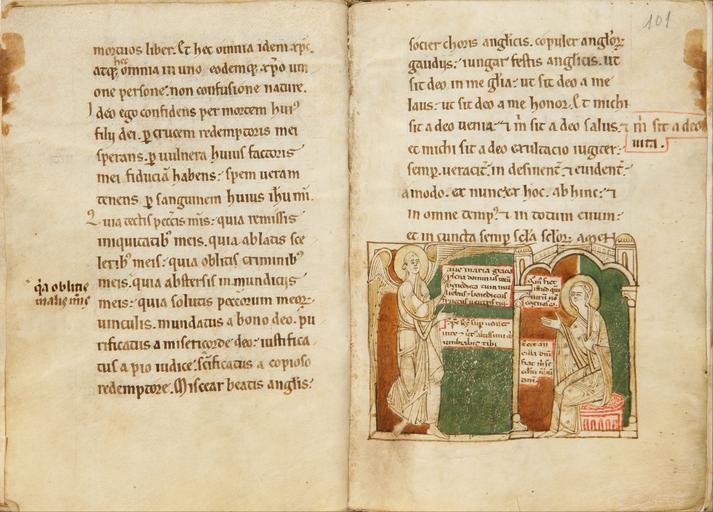 mortuos liber. Et hec omnia idem xp̄c.
atq; hec omnia in uno eodemq; xp̄o un
one persone. non confusione nature.
Ideo ego confidens per mortem hui⁹
filii dei. ꝑ crucem redemptoris mei
sperans. ꝑ uulnera huius factoris
mei fiduciā habens. spem ueram
tenens. ꝑ sanguinem huius ihu mi.
Quia tectis peccatis mīs. quia remissis
iniquitatib⁹ meis. quia ablatis sce
lerib⁹ meis. quia oblitis criminib⁹
q̄a oblitis
malis mīs
meis. quia abstersis inmundiciis
meis. quia solutis peccatorum meoꝝ
uinculis. mundatus a bono deo. pu
rificatus a misericorde deo. iustifica
tus a pio iudice. sc̄ificatus a copioso
redemptore. Miscear beatis anglis.
101
socier choris anglicis. copuler angloꝝ
gaudiis. iungar festis anglicis. ut
sit deo in me gl̄ia. ut sit deo a me
laus. ut sit deo a me honor. Et michi
sit a deo uenia. ⁊ m̄ sit a deo salus. ⁊ m̄ sit a deo
uita.
et michi sit a deo exultacio iugiter.
semp. ueracit̄. in desinent̄. ⁊ euident̄.
amodo. et nunc. ex hoc. ab hinc. ⁊
in omne temp⁹ ⁊ in totum euum.
et in cuncta semp sc̄la sc̄loꝝ. amen
aue maria gracia
plena dominus
benedicta tu in mu
lieribus. benedictus
fructus uentris tui
sps sc̄s sup ueniet
in te ⁊ uirt⁹ altissimi ob
umbrabit tibi
Quom̄ fiet
istud qm̄
uirum n̄
cognosco.
Ecce an
cilla dn̄i
fiat m̄ se
cdm̄ uerbū
tuū.